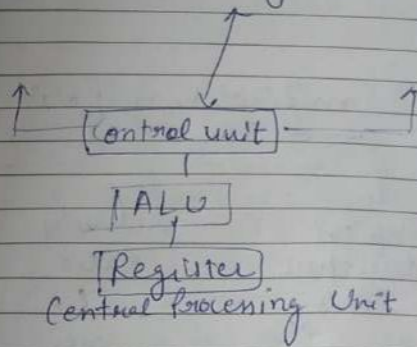 Control unit
ALU
Register
Central Processing Unit